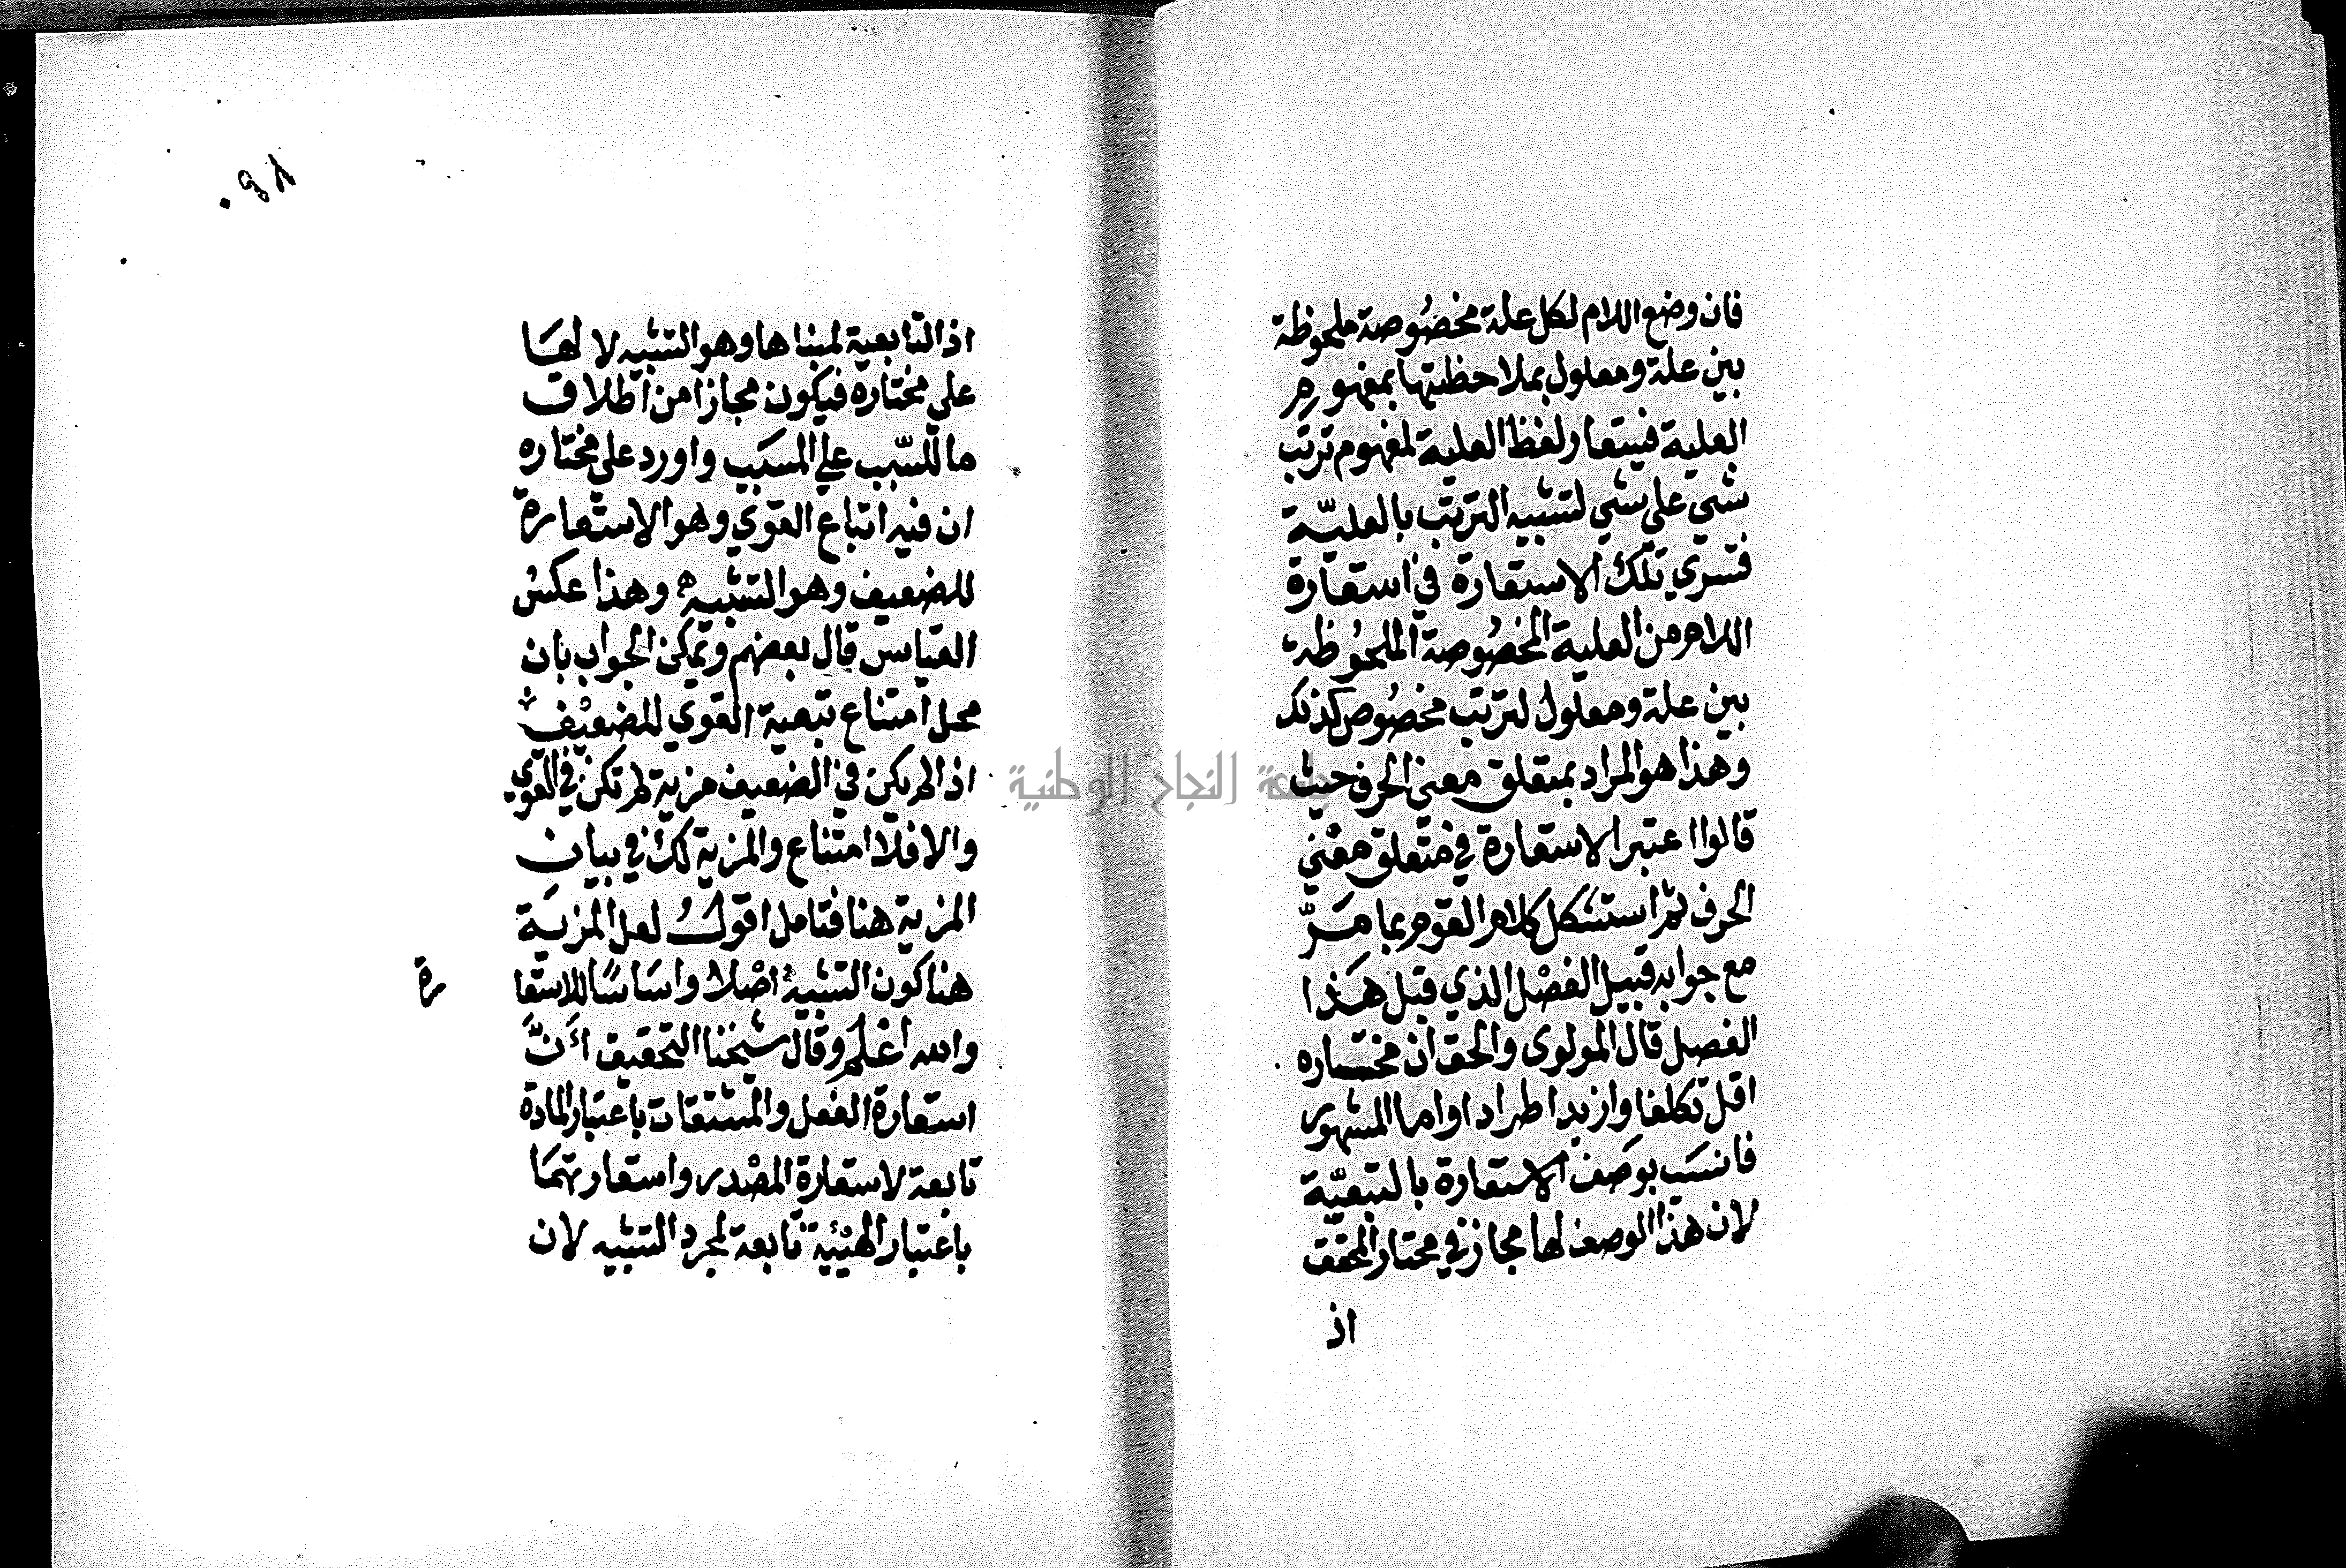 فان وضع اللام لكل علة مخصوصة ملحوظة
بين علة ومعلول بملاحظتها بمفهوم
العلية فيستعار لفظ العلية لمفهوم ترتب
شي علي شي لتشبيه الترتب بالعليّة
فتسري تلك الاستعارة في استعارة
اللام من العلية المخصوصة الملحوظة
بين علة ومعلول لترتب مخصوص كذلك
وهذا هو المراد بمتعلق معني الحرف حيث
قالوا اعتبر الاستعارة في متعلق معني
الحرف ثم استشكل كلام القوم بما مَرّ
مع جوابه قبيل الفصْل الذي قبل هَذا
الفصل قال المولوى والحق ان مختاره
اقل تكلفا وازيد اطرادا واما المشهور
فانسَب بوصف الاستعارة بالتبعيّة
لان هذا الوصف لها مجاز في مختار المحقق
اذ
٠٩٨
اذ التابعية لمبناها وهو التشبيه لا لهَا
علي مختاره فيكون مجازا من اطلاق
ما للسّبب علي المسَبب واورد علي مختاره
ان فيه اتباع القوي وهو الاستعارة
للضعيف وهو التشبيه وهذا عكسُ
القياس قال بعضهم ويمكن الجواب بان
محل امتناع تبعية القوي للضعيف
اذا لم يكن في الضعيف مزية لم تكن في القوي
والا فلا امتناع والمزية لك في بيان
المزية هنا فتامل اقولُ لعل المزيَة
هنا كون التشبيهُ اصْلا واسَاسًا للاستعا
رة
والله اعْلم وقال شيخنا التحقيق اَنَّ
استعارة الفعل والمشتقات باعتبار المادة
تابعة لاستعارة المصْدر واستعارتهمَا
باعتبار الهيئة تابعة لمجرد التشبيه لان
جامعة النجاح الوطنية